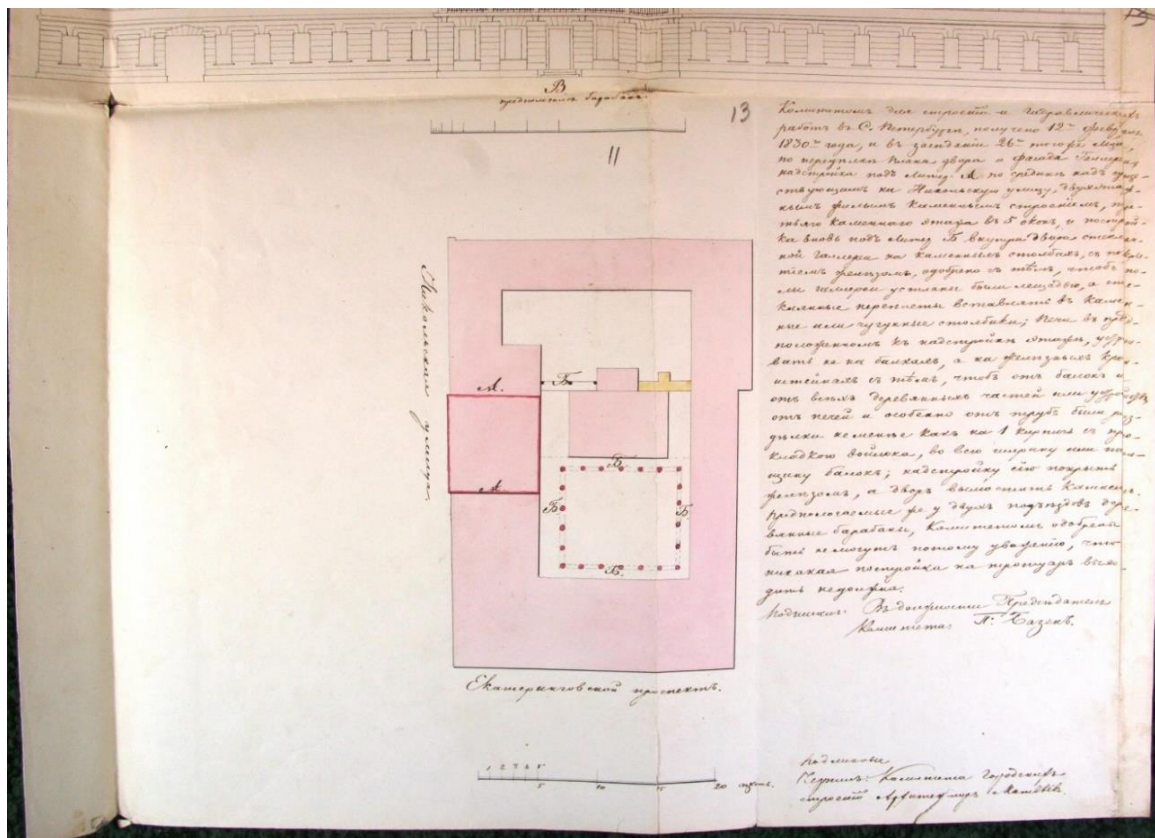 В
13
11
Комитетомъ для строеній и Гидравлическихъ
работъ въ С. Петербургѣ, получено 12го февраля
1830го года, и въ засѣданіи 26го того же м-ца,
по передѣлкѣ плана двора и фасада
надстройка подъ литер: А по срединѣ надъ
ствующимъ на Никольскую улицу, двухэтаж-
нымъ жилымъ каменнымъ строеніемъ, тре-
тьяго каменнаго этажа въ 5 оконъ, и построй-
ка вновь подъ литер Б внутри двора стеклян-
ной галлереи на каменныхъ столбахъ, съ покры-
тіемъ желѣзомъ, одобрено съ тѣмъ, чтобъ по-
лы галлереи устланы были лещадью, а сте-
клянные переплеты вставлять въ камен-
ные или чугунные столбики; Печи въ пред-
положенномъ къ надстройкѣ этажѣ, устраи-
вать не на балкахъ, а на желѣзныхъ крон-
штейнахъ съ тѣмъ, чтобъ отъ балокъ и
отъ всѣхъ деревянныхъ частей
отъ печей и особенно отъ трубъ были раз-
дѣлки не менѣе какъ на 1 кирпичъ съ про-
кладкою войлока, во всю ширину или тол-
щину балокъ; надстройку сію покрыть
желѣзомъ, а дворъ вымостить камнемъ.
Предполагаемые же у двухъ подъѣздовъ дере-
вянные барабаны, Комитетомъ одобрены
быть не могутъ потому уваженію, что
никакая постройка на тротуаръ выхо-
дить не должна.
Подписалъ: Въ должности Предсѣдателя
Комитета: П: Базенъ.
Никольская улица.
А.
Б
А.
Б
Б
Б
Б.
Екатерингофской проспектъ.
1 2 3 4 5
5 10 15 20 сажень.
Комитета Городскихъ
строеній Архитекторъ